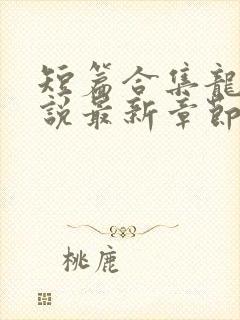 短篇合集龍
說最新章節
桃鹿